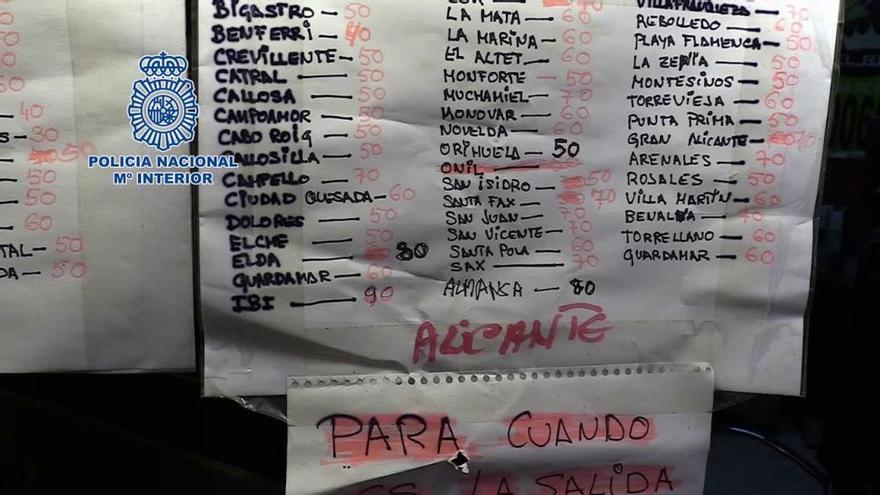 40
30
50
50
50
60
TAL — 50
DA — 50
BIGASTRO — 50
BENFERRI — 40
CREVILLENTE — 50
CATRAL — 50
CALLOSA — 50
CAMPOAMOR — 50
CABO ROIG — 50
CALLOSILLA — 50
CAMPELLO — 70
CIUDAD QUESADA — 60
DOLORES — 50
ELCHE — 50
ELDA — 80
GUARDAMAR — 60
IBI — 90
LA MATA — 60
LA MARINA — 60
EL ALTET — 60
MONFORTE — 50
MUCHAMIEL — 70
MONOVAR — 60
NOVELDA — 60
ORIHUELA — 50
ONIL
SAN ISIDRO — 50
SANTA FAX — 70
SAN JUAN — 70
SAN VICENTE — 70
SANTA POLA — 60
SAX — 60
ALMANSA — 80
VILLAFRANQUEZA — 70
REBOLLEDO — 60
PLAYA FLAMENCA — 50
LA ZENIA — 50
MONTESINOS — 50
TORREVIEJA — 60
PUNTA PRIMA — 50
GRAN ALICANTE — 70
ARENALES — 70
ROSALES — 50
VILLA MARTIN — 60
BENALUA — 70
TORRELLANO — 60
GUARDAMAR — 60
ALICANTE
PARA CUANDO
ES LA SALIDA
POLICIA NACIONAL
Mº INTERIOR